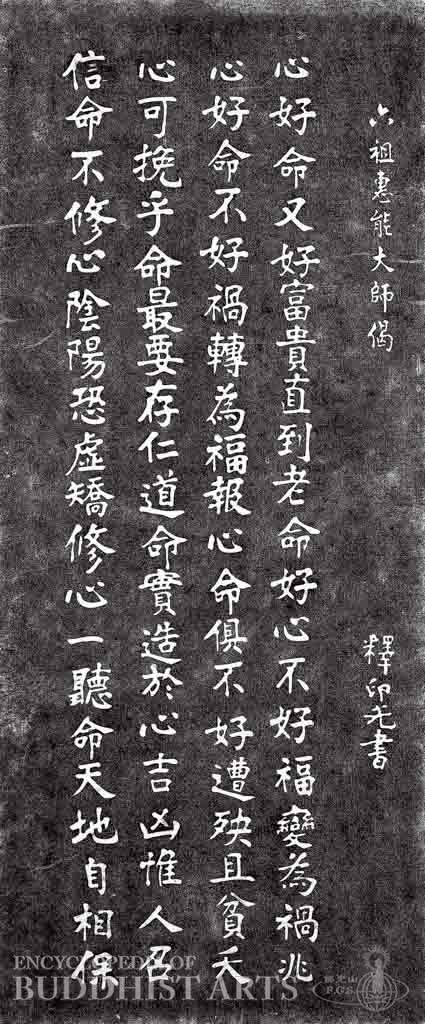 六祖惠能大師偈
釋印光書
心好命又好富貴直到老命好心不好福變為禍兆
心好命不好禍轉為福報心命俱不好遭殃且貧夭
心可挽乎命最要存仁道命實造於心吉凶惟人召
信命不修心陰陽恐虛矯修心一聽命天地自相保
ENCYCLOPEDIA OF
BUDDHIST ARTS
佛光山
F.G.S.